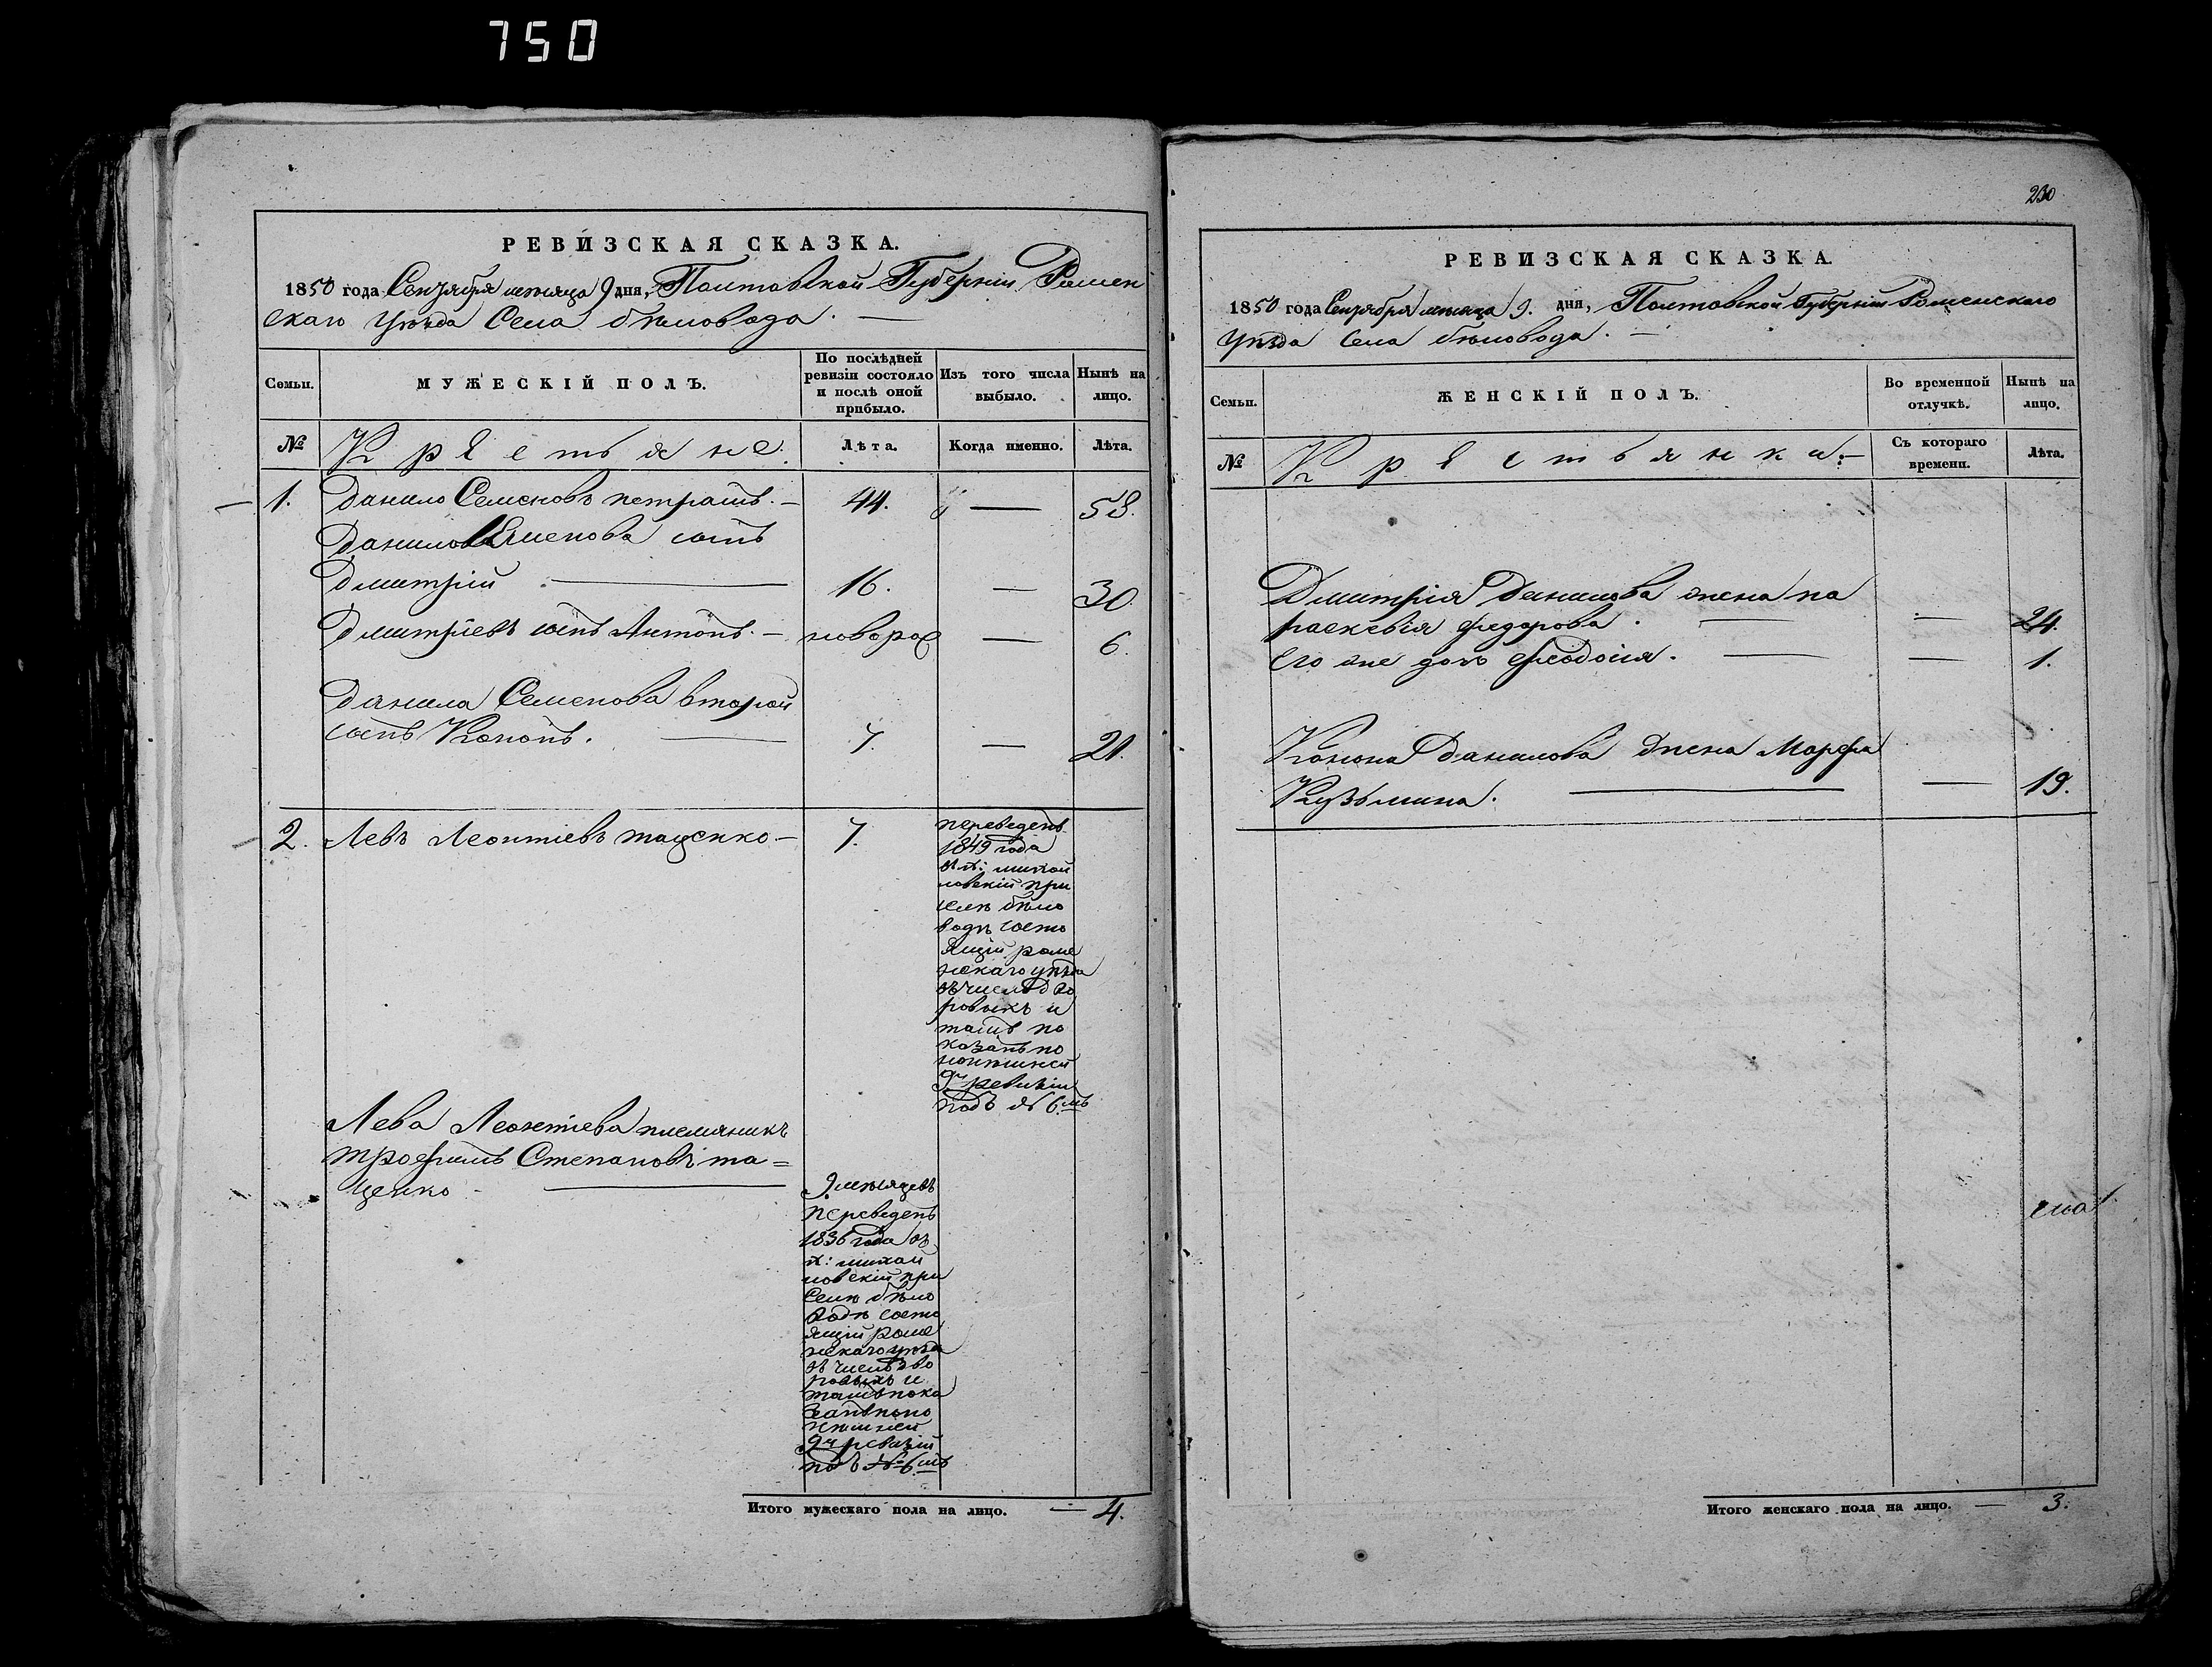 750
РЕВИЗСКАЯ СКАЗКА.
1850 года Сентября месяца 9 дня, Полтавской Губерніи Ромен
скаго Уѣзда Села бѣловода. —
Семьи.
МУЖЕСКІЙ ПОЛЪ.
По послѣдней
ревизіи состояло
и послѣ оной
прибыло.
Изъ того числа
выбыло.
Нынѣ на
лицо.
№
Крестьяне.
Лѣта.
Когда именно.
Лѣта.
1. Данило Семеновъ петрашъ. — 44. — 58.
Данила Семенова сынъ
Дмитрій. — 16. — 30.
Дмитріевъ сынъ Антонъ. — новорож — 6.
Данила Семенова второй
сынъ Кононъ. — 7. — 21.
2. Левъ Леонтіевъ тащенко — 7.
переведенъ
1849 года
въ х: михай
ловскій при
селѣ бѣло
водѣ состо
ящій роме
нскаго уѣзда
въ число дво
ровыхъ и
тамъ по
казанъ по
нынѣшней
9й ревизіи
подъ № 6мъ
Лева Леонтіева племяникъ
трофимъ Степановъ та=
щенко — 9 месяцевъ
переведенъ
1836 года въ
х: михай
ловскій при
Селѣ бѣло
водѣ состо
ящій роме
нскаго уѣзда
въ число дво
ровыхъ и
тамъ пока
занъ по но
нѣшней
9й ревизіи
подъ № 6мъ
Итого мужескаго пола на лицо. — 4.
230
РЕВИЗСКАЯ СКАЗКА.
1850 года Сентября месяца 9. дня, Полтавской Губерніи Роменскаго
Уѣзда Села бѣловода. —
Семьи.
ЖЕНСКІЙ ПОЛЪ.
Во временной
отлучкѣ.
Нынѣ на
лицо.
№
Крестьянки: —
Съ котораго
времени.
Лѣта.
Дмитрія Данилова жена па
раскевія федорова. — — 24.
Его же дочь феодосія. — — 1.
Конона Данилова жена Марфа
Кузьмина. — — 19.
Итого женскаго пола на лицо. — 3.